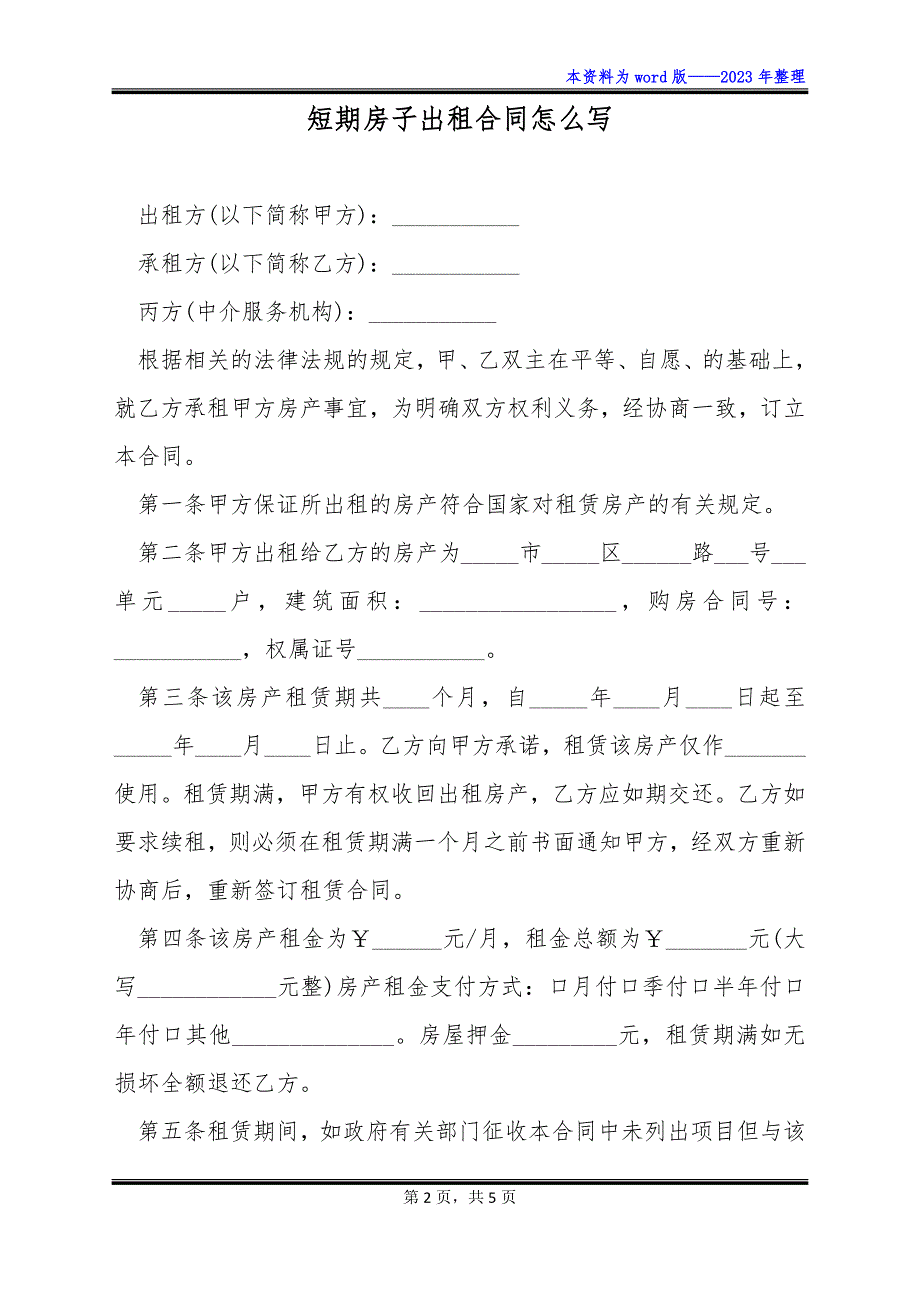 本资料为 word 版——2023 年整理
短期房子出租合同怎么写
出租方(以下简称甲方)：___________
承租方(以下简称乙方)：___________
丙方(中介服务机构)：___________
根据相关的法律法规的规定，甲、乙双主在平等、自愿、的基础上，
就乙方承租甲方房产事宜，为明确双方权利义务，经协商一致，订立
本合同。
第一条甲方保证所出租的房产符合国家对租赁房产的有关规定。
第二条甲方出租给乙方的房产为_____市_____区______路___号___
单元_____户，建筑面积：_________________，购房合同号：
___________，权属证号___________。
第三条该房产租赁期共____个月，自_____年____月____日起至
_____年____月____日止。乙方向甲方承诺，租赁该房产仅作_______
使用。租赁期满，甲方有权收回出租房产，乙方应如期交还。乙方如
要求续租，则必须在租赁期满一个月之前书面通知甲方，经双方重新
协商后，重新签订租赁合同。
第四条该房产租金为￥______元/月，租金总额为￥_______元(大
写____________元整)房产租金支付方式：口月付口季付口半年付口
年付口其他______________。房屋押金_________元，租赁期满如无
损坏全额退还乙方。
第五条租赁期间，如政府有关部门征收本合同中未列出项目但与该
第 2 页，共 5 页